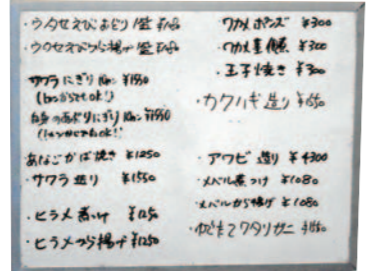 ・ウタセえびおどり /盛
・ウタセえびから揚げ /盛
サワラにぎり 1かん ¥1550
(1かんからでもok!)
にぎり 1かん ¥1550
(1かんからでもok!)
あなごかば焼き ¥1250
・サワラ造り ¥1550
・ヒラメ煮つけ ¥1250
・ヒラメから揚げ ¥1250
ワカメポンズ ¥300
・ワカメ ¥300
・玉子焼き ¥300
・カワハギ造り ¥1650
・アワビ造り ¥4300
・メバル煮つけ ¥1080
・メバルから揚げ ¥1080
・ゆでたてワタリガニ